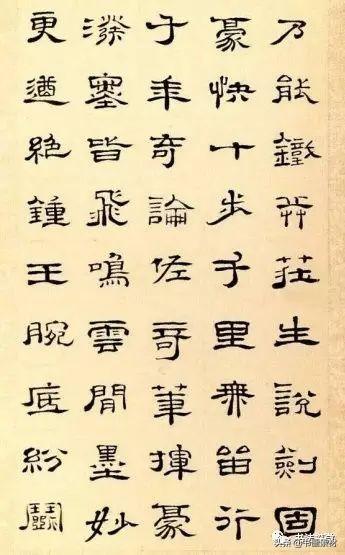 乃能鐵并莊生說劍固
豪快十步千里無留行
千年奇論佐奇筆揮豪
潑皆飛鳴雲間墨妙
更遒絕鍾王腕底紛鬭